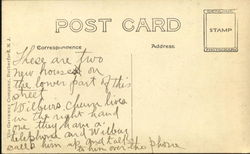 POST CARD
Correspondence
Address.
STAMP
PHOTOGRAPH
These are two
new houses on
the lower part of this
street
Wilburs chum lives
in the right hand
one they have a
telephone and Wilbur
calls him up and talks
to him over the phone